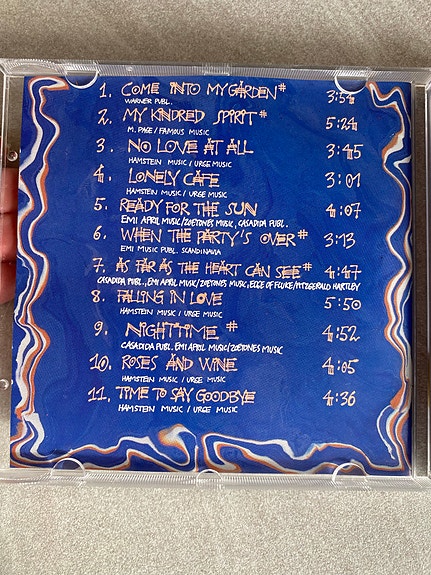 1. COME INTO MY GARDEN# 3:54
WARNER PUBL.
2. MY KINDRED SPIRIT# 5:24
M. PAGE / FAMOUS MUSIC
3. NO LOVE AT ALL 3:45
HAMSTEIN MUSIC / URGE MUSIC
4. LONELY CAFE 3:01
HAMSTEIN MUSIC / URGE MUSIC
5. READY FOR THE SUN 4:07
EMI APRIL MUSIC/ZOETONES MUSIC, CASADIDA PUBL.
6. WHEN THE PARTY'S OVER# 3:13
EMI MUSIC PUBL. SCANDINAVIA
7. AS FAR AS THE HEART CAN SEE# 4:47
CASADIDA PUBL., EMI APRIL MUSIC/ZOETONES MUSIC, EDGE OF FLUKE/FITZGERALD HARTLEY
8. FALLING IN LOVE 5:50
HAMSTEIN MUSIC / URGE MUSIC
9. NIGHTTIME # 4:52
CASADIDA PUBL. EMI APRIL MUSIC/ZOETONES MUSIC
10. ROSES AND WINE 4:05
HAMSTEIN MUSIC / URGE MUSIC
11. TIME TO SAY GOODBYE 4:36
HAMSTEIN MUSIC / URGE MUSIC